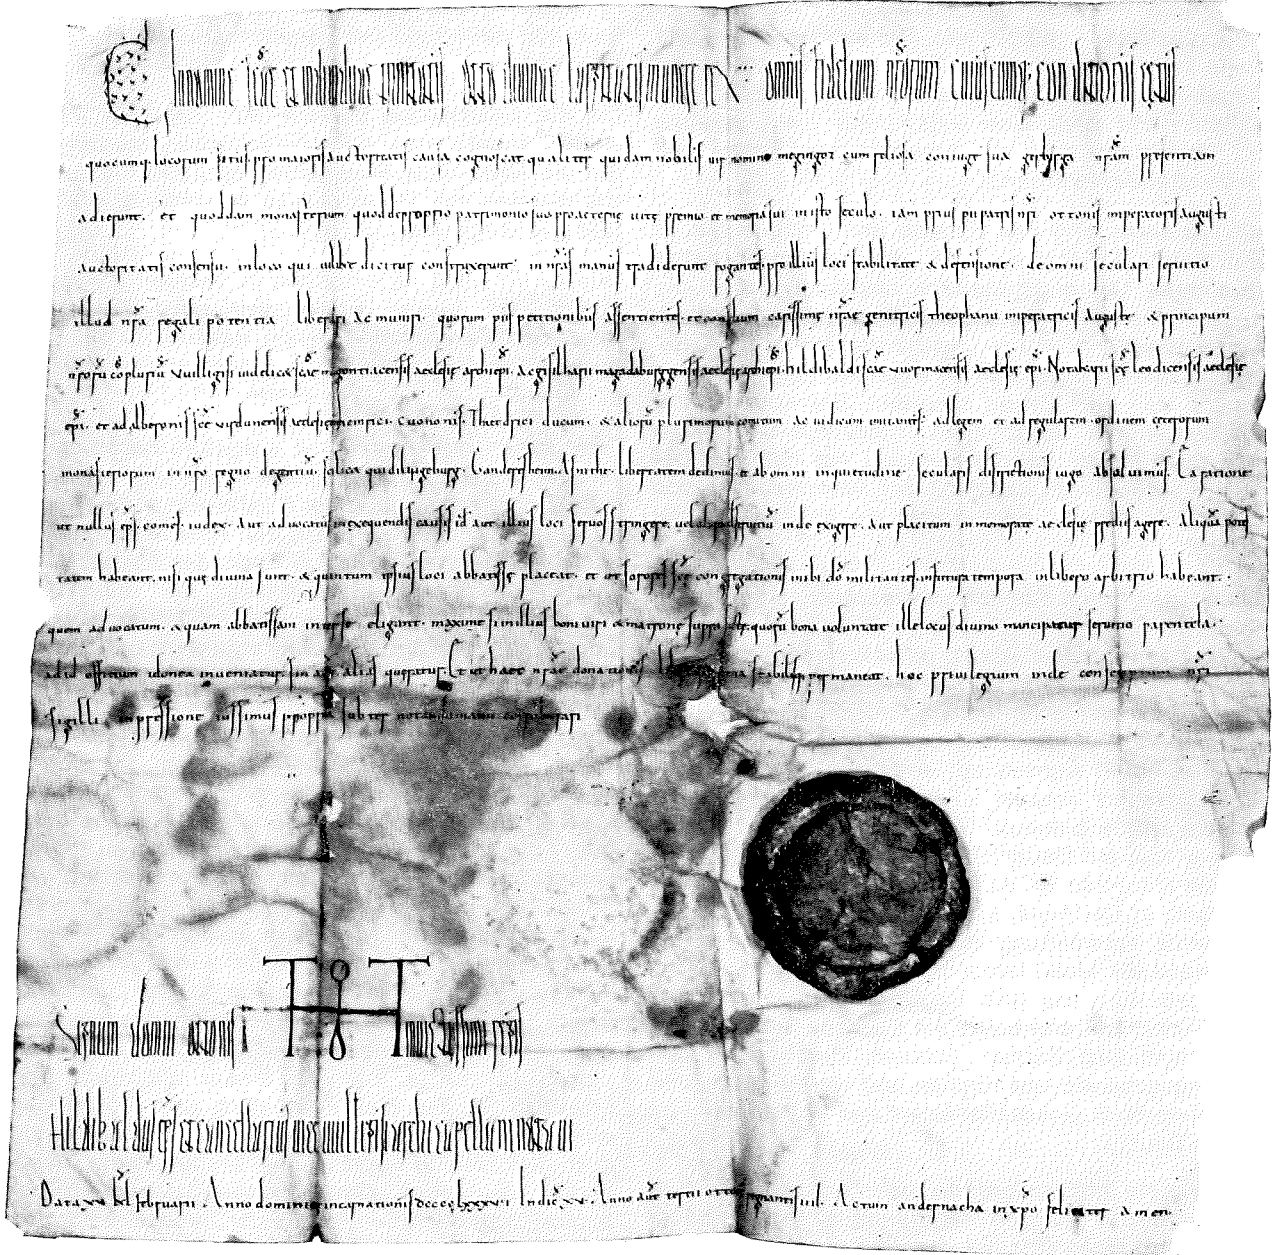 In nomine scae et individuae trinitatis otto divina largiente gratia rex omnis fidelium nrorum cuiuscumq; condicionis cetus
quocumq; locorum situs pro maioris auctoritatis causa cognoscat qualiter quidam nobilis vir nomine megingoz cum filiosa coniuge sua gerbirga nram presentiam
adierunt. et quoddam monasterium quod de proprio patrimonio suo pro aeterne vite premio et memoria sui in isto seculo. iam prius pii patris nri ottonis imperatoris augusti
auctoritatis consensu. in loco qui dicitur construxerunt. in nras manus tradiderunt rogantes. pro illius loci stabilitate & defensione. de omni seculari servitio
illud nra regali potentia liberari ac muniri. quorum piis petitionibus assentientes. et consultum carissime nrae genitricis theophanu imperatricis auguste & principum
nrorū cōplurīu vuilligisi videlicet scae magontiacensis aeclesie archiepi. ac gisilharii magadaburgensis aeclesie archiepi. hildibaldi scae vuormacensis aeclesie epi. Notkeri sce leodicensis aeclesie
epi. et adalberonis sce virdunensis aeclesie heinrici. cuononis. Thiedrici ducum. & aliorū plurimorum comitum ac iudicum imitantes. ad legem et ad regularem ordinem ceterorum
monasteriorum in nro regno degentiū. scilicet quidiligeburg. Gandersheim. Asinthe. libertatem dedimus. et ab omni inquietudine secularis districtionis iugo absolvimus. Ea ratione
ut nullus eps. comes. iudex. aut advocatus in exequendis causis id aut illius loci servos stringere. vel inde exigere. aut placitum in memorate aeclesie prediis agere. aliquā potes
tatem habeant. nisi que divina sunt. & quantum ipsius loci abbatisse placeat. et ut sorores sce congregationis inibi dō militantes. in futura tempora in libero arbitrio habeant.
quem advocatum. & quam abbatissam inter se eligant. maxime si in illius boni viri & matrone supra quorū bona voluntate ille locus divino mancipatur servitio parentela.
ad id officium idonea inveniatur. sin aūt aliās queratur. Et ut haec nrae donationis stabilis permaneat. hoc privilegium inde conscriptum nri
sigilli inpressione iussimus propria subter notatū manu corroborari
Signum domni ottonis invictissimi regis
Hildibaldus eps et cancellarius vice vuilligisi archicapellani notavi
Data xv kl februarii. Anno dominice incarnationis dcccclxxxvi Indic xv. Anno aūt tertii ottonis regnantis iiii. Actum andernacha in xpo feliciter amen.